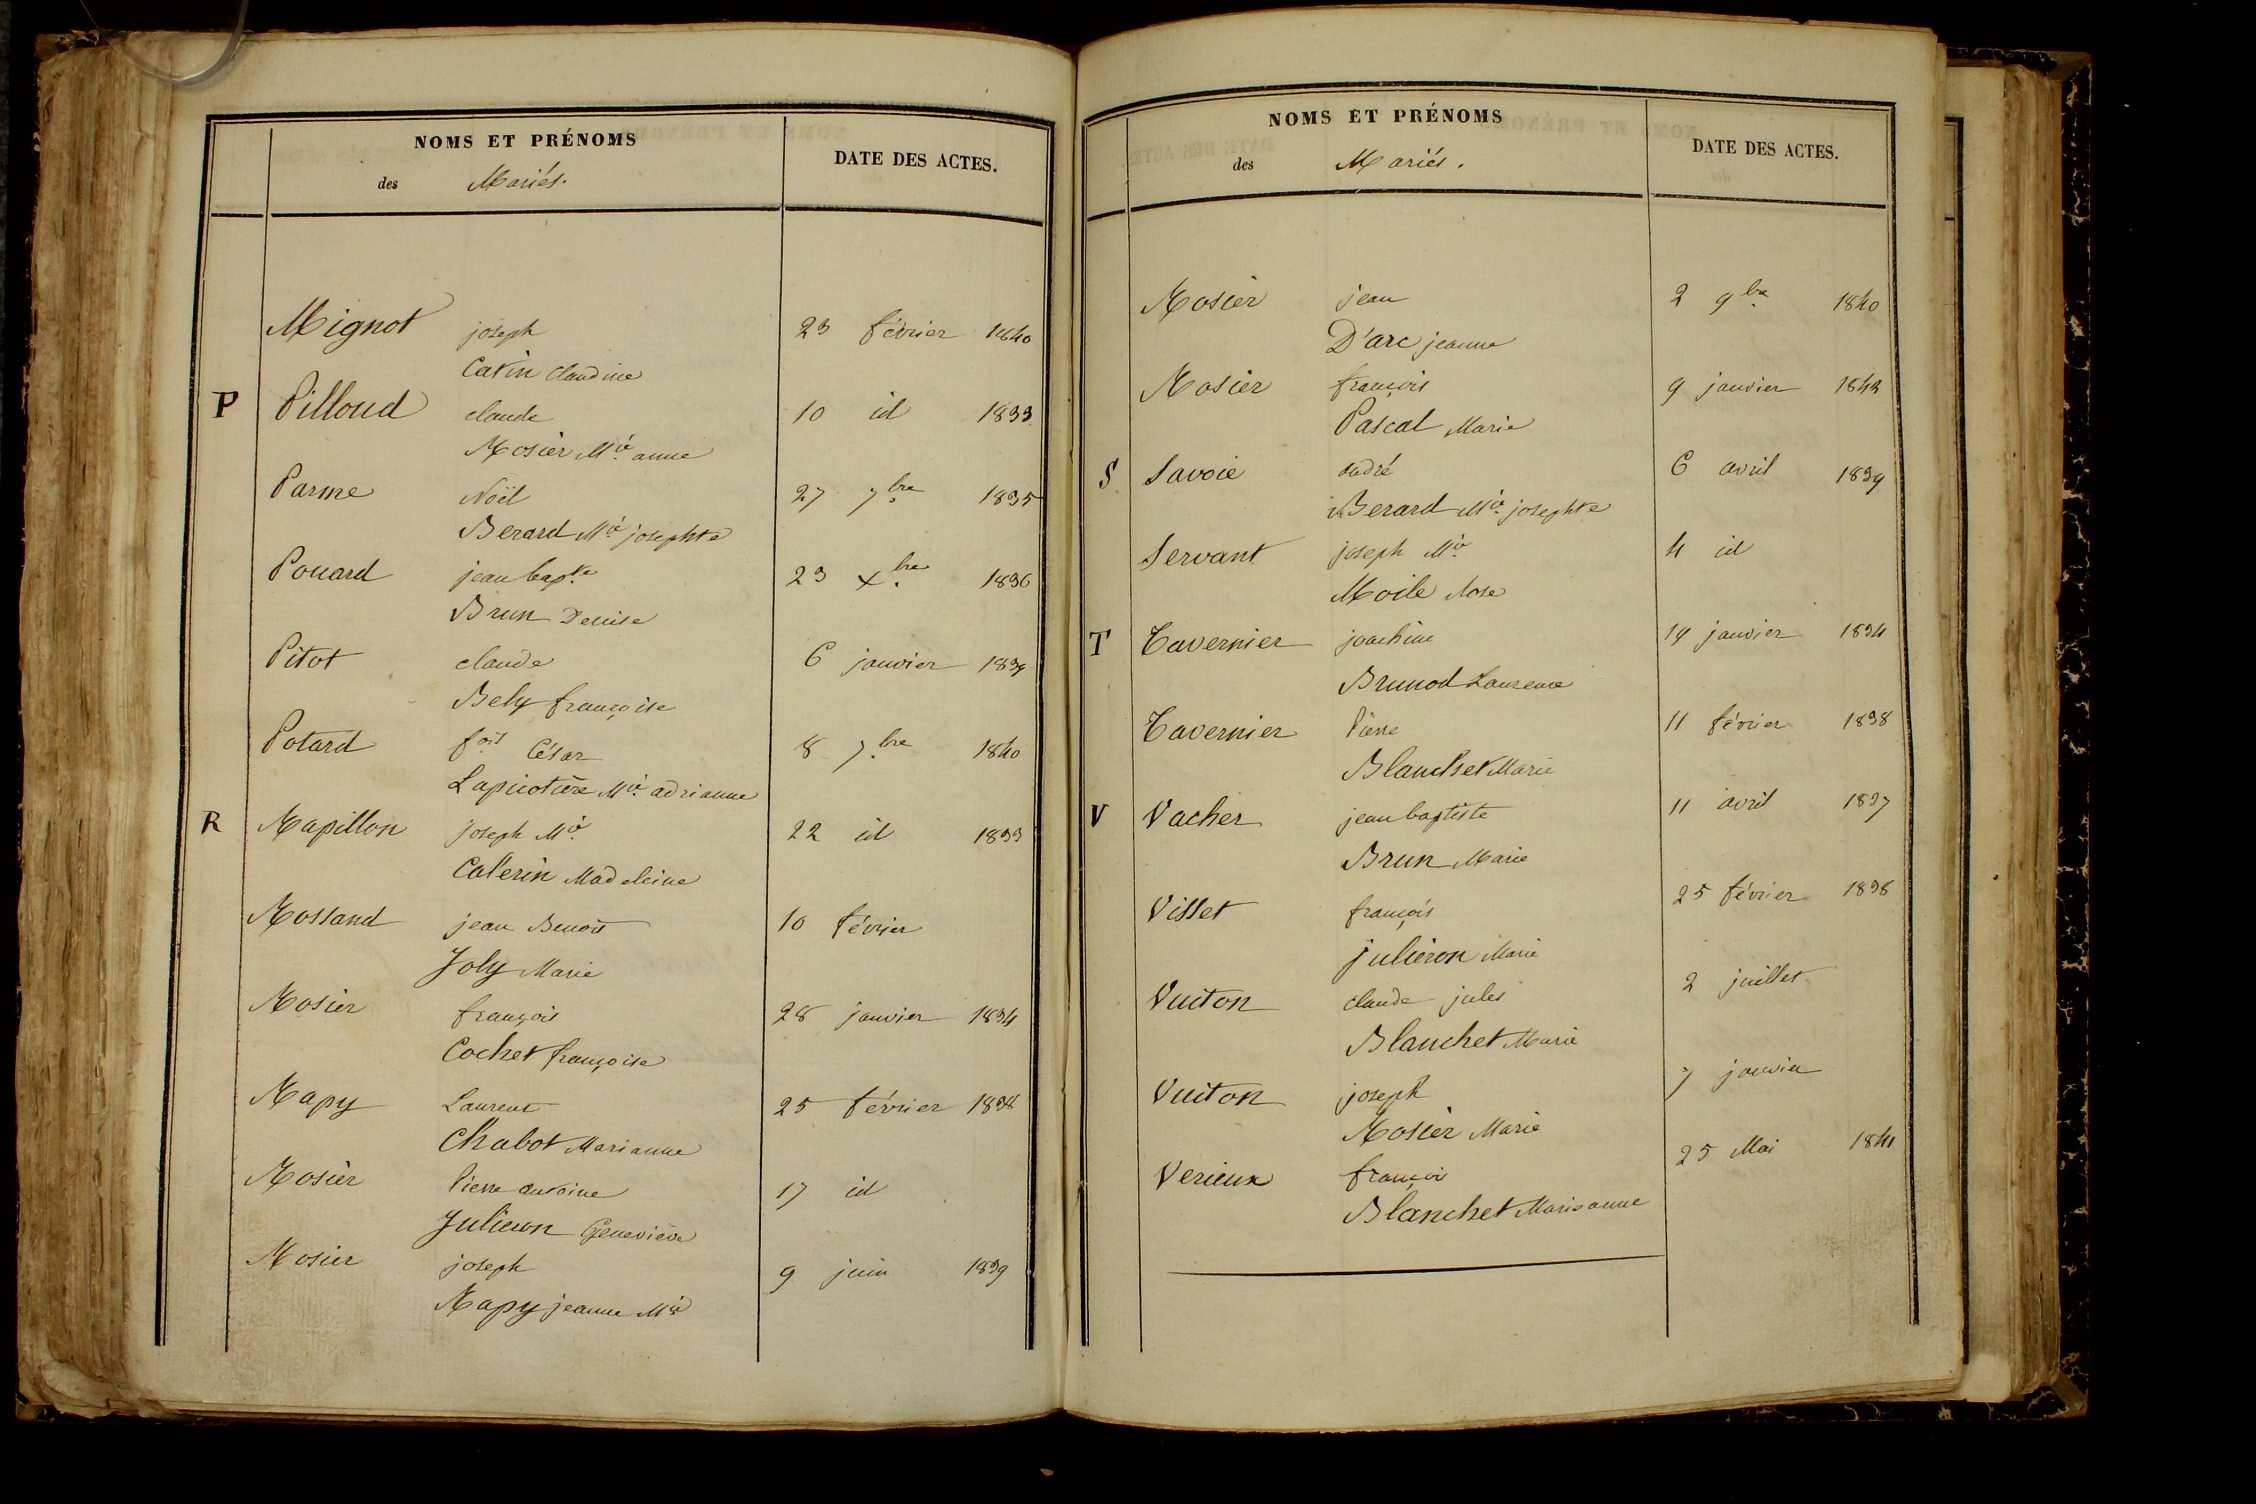 NOMS ET PRÉNOMS
des Mariés.
DATE DES ACTES.
Mignot joseph 23 février 1840
Catin Claudine
P Pilloud claude 10 id 1833
Rosier Mie anne
Parme Noël 27 7bre 1835
Berard Mie josephte
Pouard jean bapte 23 xbre 1836
Brun Denise
Pitot claude 6 janvier 1839
Bely françoise
Potard fois César 8 7bre 1840
Lapicotière Mie adrianne
R Rapillon joseph Mie 22 id 1833
Caterin Madeleine
Rossand jean Benoit 10 février
Joly Marie
Rosier françois 28 janvier 1834
Cochet françoise
Rapy Laurent 25 février 1838
Chabot Marianne
Rosier Pierre antoine 17 id
Julieron Geneviève
Rosier joseph 9 juin 1839
Rapy jeanne Mie
NOMS ET PRÉNOMS
des Mariés.
DATE DES ACTES.
Rosier jean 2 9bre 1840
D'arc jeanne
Rosier françois 9 janvier 1842
Pascal Marie
S Savoie andré 6 avril 1839
Berard Mie josephte
Servant joseph Mie 4 id
Moile Rose
T Tavernier joachim 14 janvier 1834
Brunod Laurence
Tavernier Pierre 11 février 1838
Blanchet Marie
V Vacher jean baptiste 11 avril 1837
Brun Marie
Villet françois 25 février 1838
julieron Marie
Vuiton claude jules 2 juillet
Blanchet Marie
Vuiton joseph 7 janvier
Rosier Marie
Verieux françois 25 Mai 1841
Blanchet Marie anne